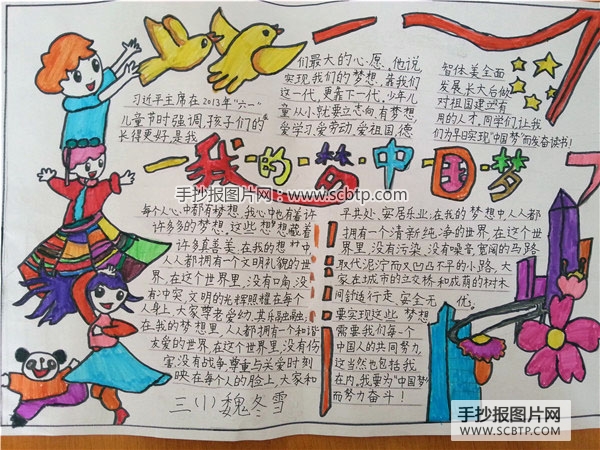 习近平主席在2013年“六一”
儿童节时强调,孩子们的
长得更好,是我
们最大的心愿、他说,
实现我们的梦想,靠我们
这一代,更靠下一代,少年儿
童从小就要立志向,有梦想,
爱学习,爱劳动,爱祖国,德
智体美全面
发展,长大后做
对祖国建设有
用的人才,同学们,让我
们为早日实现“中国梦”而发奋读书!
我的梦中国梦
手抄报图片网:www.scbtp.com
每个人心中都有梦想,我心中也有着许
许多多的梦想,这些“想”想藏着
许多真善美,在我的梦想中
人人都拥有一个文明礼貌的世
界,在这个世界里,没有吵闹,没
有冲突,文明的光辉照耀在每个
人身上,大家尊老爱幼,其乐融融,
在我的梦想里,人人都拥有一个和谐
友爱的世界,在这个世界里,没有伤
害,没有战争,尊重与关爱时刻
映在每个人的脸上,大家和
平共处,安居乐业,在我的梦想中人人都
拥有一个清新纯净的世界,在这个世
界里,没有污染,没有噪音,宽阔的马路
取代泥泞而又凹凸不平的小路,大
家在城市的立交桥和成荫的树木
间舒适行走,安全无忧。
要实现这些梦想
需要我们每个
中国人的共同努力,
这当然也包括我
在内,我要为“中国梦”
而努力奋斗!
三(1)魏冬雪
手抄报图片网
WWW.SCBTP.COM